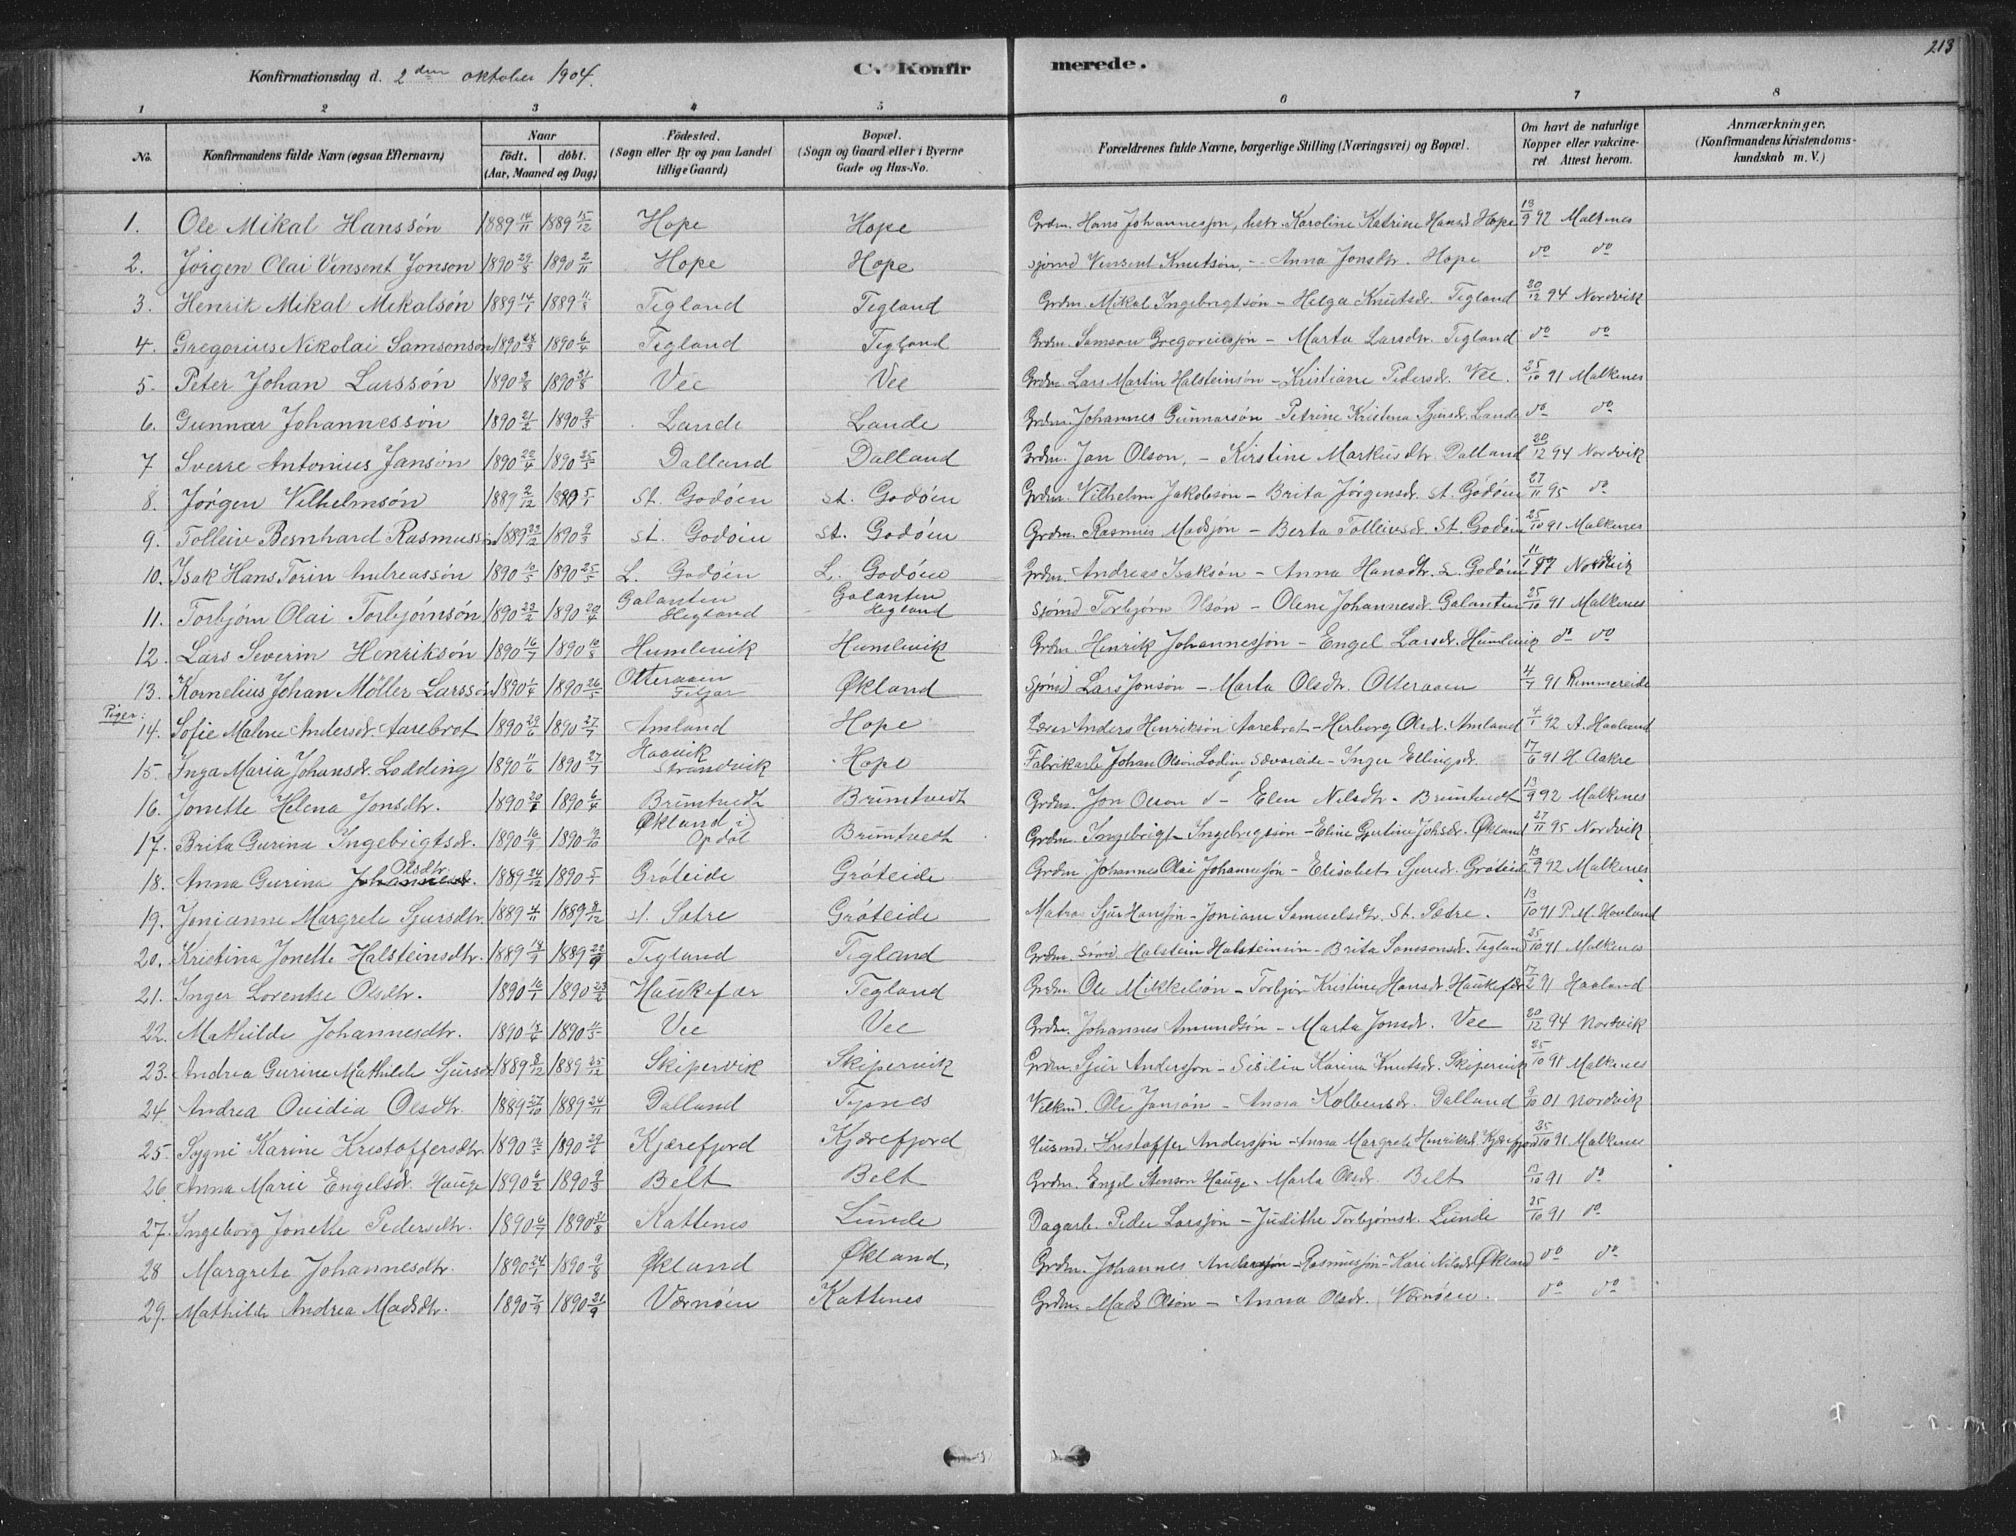 213
Konfirmationsdag d. 2den oktober 1904.
C. Konfirmerede.
1 2 3 4 5 6 7 8
No. Konfirmandens fulde Navn (ogsaa Efternavn) Naar født. døbt. (Aar, Maaned og Dag) Fødested. (Sogn eller By og paa Landet tillige Gaard.) Bopæl. (Sogn og Gaard eller i Byerne Gade og Hus-No. Forældrenes fulde Navne, borgerlige Stilling (Næringsvei) og Bopæl. Om havt de naturlige Kopper eller vakcineret. Attest herom. Anmærkninger, (Konfirmandens Kristendomskundskab m. V.)
1. Ole Mikal Hanssøn 1889 14/11 1889 15/12 Hope Hope Grdm. Hans Johannessøn, hstr. Karoline Katrine Hansd. Hope 13/9 92 Malkenes
2. Jørgen Olai Vensent Jonson 1890 29/8 1890 2/11 Hope Hope Sjømd Vensent Knutsøn, - Anna Jonsdtr. Hope do do
3. Henrik Mikal Mikalsøn 1889 14/7 1889 11/8 Tegland Tegland Grdm. Mikal Ingebrigtsøn - Helga Knutsdr. Tegland 20/12 94 Nordvik
4. Gregorius Nikolai Samsonsøn 1890 1890 6/4 Tegland Tegland Grdm. Samson Gregoriussøn - Marta Larsdtr. Tegland do do
5. Peter Johan Larssøn 1890 3/8 1890 31/8 Vee Vee Grdm. Lars Martin Halsteinsøn - Kristiane Pedersdr. Vee. 25/10 91 Malkenes
6. Gunnar Johannessøn 1890 21/2 1890 9/3 Lande Lande Grdm. Johannes Gunnarsøn - Petrine Kristina Sjursdr. Lande do do
7 Sverre Antonius Jansøn 1890 22/4 1890 25/5 Dalland Dalland Grdm. Jan Olson, - Kirstine Markusdtr. Dalland 20/12 94 Nordvik
8. Jørgen Vilhelmsøn 1889 2/12 1890 5/1 St. Godøen St. Godøen Grdm. Vilhelm Jakobsøn - Brita Jørgensdr. St. Godøen 27/11 95 do
9. Tolleiv Bernhard Rasmussøn 1889 22/12 1890 9/3 St. Godøen St. Godøen Grdm. Rasmus Madssøn - Berta Tolleivsdr. St. Godøen 25/10 91 Malkenes
10. Isak Hans Torin Andreassøn 1890 10/5 1890 25/5 L. Godøen L. Godøen Grdm. Andreas Isaksøn - Anna Hansdtr. L. Godøen 11/1 97 Nordvik
11. Torbjørn Olai Torbjørnsøn 1890 22/2 1890 20/4 Galanten Hegland Galanten Hegland Sjømd Torbjørn Olsøn - Olene Johannesdr. Galanten 25/10 91 Malkenes
12. Lars Severin Henriksøn 1890 16/7 1890 10/8 Humlevik Humlevik Grdm. Henrik Johannessøn - Engel Larsdr. Humlevik do do
13. Kornelius Johan Møller Larssøn 1890 1/4 1890 26/5 Otteraaen Fitjar Økland Sjømd Lars Jonsøn - Marta Olsdtr. Otteraaen 4/7 91 Rimmereide
Piger.
14. Sofie Malene Andersdr. Aarebrot 1890 29/6 1890 27/7 Amland Hope Anders Henriksøn Aarebrot - Herborg Olsdr. Amland 4/1 92 A. Haaland
15. Inga Maria Johansdr. Lodding 1890 11/6 1890 27/7 Haavik Strandvik Hope Fabrikarb. Johan Olson Loding Sævareide - Inger Ellingsdr. 17/6 91 H. Aakre
16. Jonette Helena Jonsdtr. 1890 1890 6/4 Bruntvedt Bruntvedt Grdm. Jon Olson - Elen Nilsdtr. - Bruntvedt 13/9 92 Malkenes
17. Brita Gurina Ingebrigtsdr. 1890 16/9 1890 Økland i Opdal Bruntvedt Grdm. Ingebrigt Ingebrigtsøn - Eline Gurtine Johsdr. Økland 27/11 95 Nordvik
18. Anna Gurina Johannesdr. Olsdtr. 1889 24/12 1890 5/1 Grøteide Grøteide Grdm Johannes Olai Johannessøn - Elisabet Sjursdr. Grøteide 13/9 92 Malkenes
19. Jonianne Margrete Sjursdtr. 1889 4/11 1889 8/12 St. Sætre Grøteide Matro Sjur Hanssøn - Joniane Samuelsdtr. St. Sætre. 13/10 91 P. M. Haaland
20. Kristina Jonette Halsteinsdtr. 1889 18/9 1889 22/9 Tegland Tegland Grdm. Sømd. Halstein Halsteinsøn - Brita Samsonsdr. Tegland 25/10 91 Malkenes
21. Inger Lorentse Olsdtr. 1890 16/1 1890 23/2 Haukefær Tegland Grdm. Ole Mikkelsøn - Torbjør Kristine Hansdr. Haukefær 17/2 91 Haaland
22. Mathilde Johannesdtr. 1890 13/4 1890 11/5 Vee Vee Grdm. Johannes Amundsøn - Marta Jonsdr. Vee 20/12 94 Nordvik
23. Andrea Gurine Mathilde Sjursdr 1889 8/12 1889 25/12 Skipervik Skipervik Grdm. Sjur Anderssøn - Sesilia Karina Knutsdr. Skipervik 25/10 91 Malkenes
24 Andrea Ovidia Olsdtr. 1889 27/10 1889 24/11 Dalland Tysnes Ole Jansøn - Anna Kolbensdr. Dalland 9/10 01 Nordvik
25. Sygni Karine Kristoffersdtr. 1890 1890 29/6 Kjærefjord Kjærefjord Husmd. Kristoffer Anderssøn - Anna Margrete Henriksd. Kjærefjord 25/10 91 Malkenes
26. Anna Marie Engelsdr. Hauge 1890 6/2 1890 9/3 Belt Belt Grdm. Engel Stenson Hauge. Marta Olsdr. Belt 13/10 91 do
27. Ingeborg Jonette Pedersdtr. 1890 6/7 1890 31/8 Kattenes Lunde Dagarb. Peder Larssøn - Judithe Torbjørnsd. Lunde 25/10 91 do
28 Margrete Johannesdtr. 1890 24/7 1890 9/8 Økland Økland, Grdm. Johannes Anderssøn - Rasmussøn - Kari Nilsdr. Økland do do
29. Mathilde Andrea Madsdtr. 1890 7/9 1890 21/9 Værnøen Kattenes Grdm. Mads Olson - Anna Olsdr. Værnøen. do do